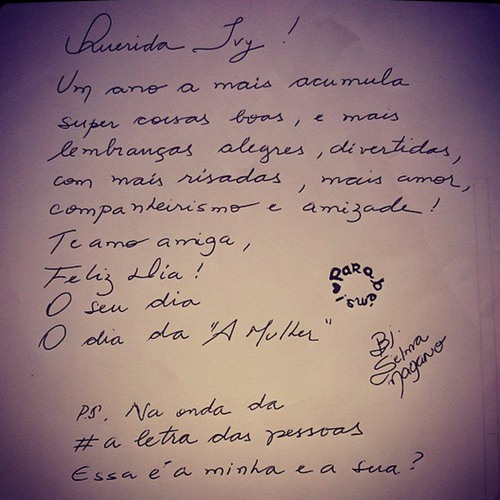 Querida Ivy!
Um ano a mais acumula
super coisas boas, e mais
lembranças alegres, divertidas,
com mais risadas, mais amor,
companheirismo e amizade!
Te amo amiga,
Feliz Dia!
O seu dia
O dia da "A Mulher"
Parabéns!
Bj.
Selma
Nagano
PS. Na onda da
#a letra das pessoas
Essa é a minha e a sua?